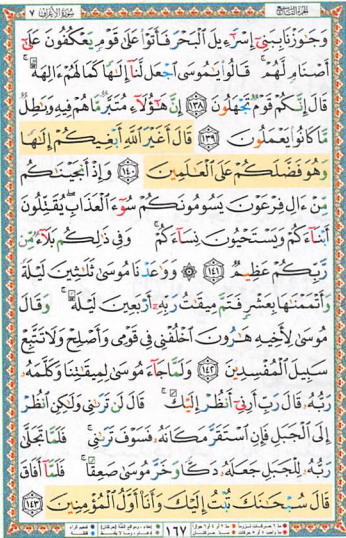 الجزء التاسع سورة الأعراف ٧
وَجَٰوَزْنَا بِبَنِىٓ إِسْرَٰٓءِيلَ ٱلْبَحْرَ فَأَتَوْا۟ عَلَىٰ قَوْمٍ يَعْكُفُونَ عَلَىٰٓ
أَصْنَامٍ لَّهُمْ ۚ قَالُوا۟ يَٰمُوسَى ٱجْعَل لَّنَآ إِلَٰهًا كَمَا لَهُمْ ءَالِهَةٌ ۚ
قَالَ إِنَّكُمْ قَوْمٌ تَجْهَلُونَ ١٣٨ إِنَّ هَٰٓؤُلَآءِ مُتَبَّرٌ مَّا هُمْ فِيهِ وَبَٰطِلٌ
مَّا كَانُوا۟ يَعْمَلُونَ ١٣٩ قَالَ أَغَيْرَ ٱللَّهِ أَبْغِيكُمْ إِلَٰهًا
وَهُوَ فَضَّلَكُمْ عَلَى ٱلْعَٰلَمِينَ ١٤٠ وَإِذْ أَنجَيْنَٰكُم
مِّنْ ءَالِ فِرْعَوْنَ يَسُومُونَكُمْ سُوٓءَ ٱلْعَذَابِ ۖ يُقَتِّلُونَ
أَبْنَآءَكُمْ وَيَسْتَحْيُونَ نِسَآءَكُمْ ۚ وَفِى ذَٰلِكُم بَلَآءٌ مِّن
رَّبِّكُمْ عَظِيمٌ ١٤١ ۞ وَوَٰعَدْنَا مُوسَىٰ ثَلَٰثِينَ لَيْلَةً
وَأَتْمَمْنَٰهَا بِعَشْرٍ فَتَمَّ مِيقَٰتُ رَبِّهِۦٓ أَرْبَعِينَ لَيْلَةً ۚ وَقَالَ
مُوسَىٰ لِأَخِيهِ هَٰرُونَ ٱخْلُفْنِى فِى قَوْمِى وَأَصْلِحْ وَلَا تَتَّبِعْ
سَبِيلَ ٱلْمُفْسِدِينَ ١٤٢ وَلَمَّا جَآءَ مُوسَىٰ لِمِيقَٰتِنَا وَكَلَّمَهُۥ
رَبُّهُۥ قَالَ رَبِّ أَرِنِىٓ أَنظُرْ إِلَيْكَ ۚ قَالَ لَن تَرَىٰنِى وَلَٰكِنِ ٱنظُرْ
إِلَى ٱلْجَبَلِ فَإِنِ ٱسْتَقَرَّ مَكَانَهُۥ فَسَوْفَ تَرَىٰنِى ۚ فَلَمَّا تَجَلَّىٰ
رَبُّهُۥ لِلْجَبَلِ جَعَلَهُۥ دَكًّا وَخَرَّ مُوسَىٰ صَعِقًا ۚ فَلَمَّآ أَفَاقَ
قَالَ سُبْحَٰنَكَ تُبْتُ إِلَيْكَ وَأَنَا۠ أَوَّلُ ٱلْمُؤْمِنِينَ ١٤٣
١٦٧